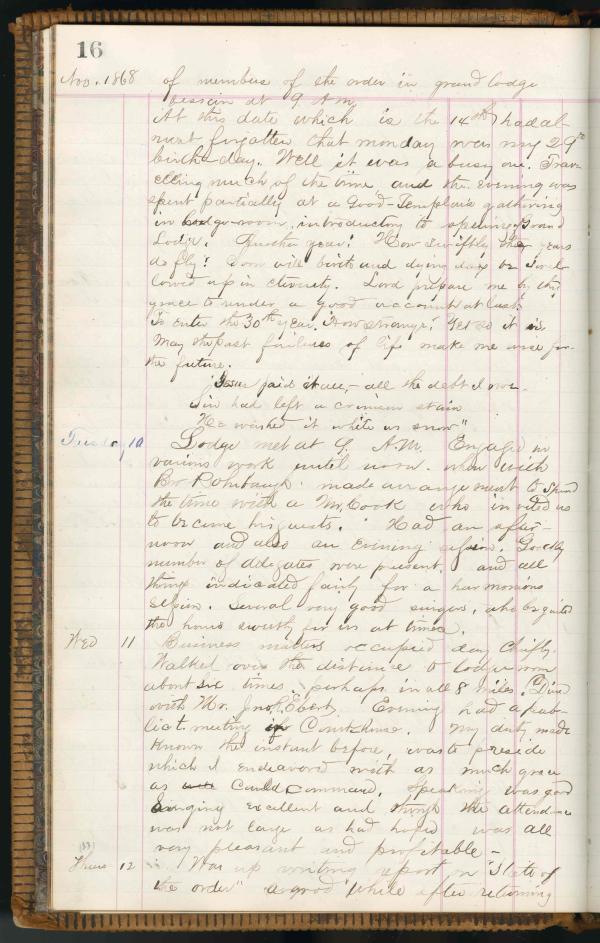 16
Nov. 1868 of members of the order in grand lodge
session at 9 A.M.
At this date which is the 14th, had al
most forgotten that monday was my 29th
birth-day. Well it was a busy one. Trav-
elling much of the time and the evening was
spent partially at a Good-Templars gathering
in Lodge-room, introductory to opening Grand
Lodge. Another year! How swiftly the years
do fly! Soon will birth and dying days be swal
lowed up in eternity. Lord prepare me by thy
grace to render a good account at last.
To enter the 30th year. How strange! Yet so it is.
May the past failures of life make me wise for
the future.
"Jesus paid it all, - all the debt I owe.
Sin had left a crimson stain
He washed it white as snow"
Tuesday 10 Lodge met at 9 A.M. Engaged in
various work until noon. when with
Bro Rohrbaugh made arrangement to spend
the time with a Mr. Cook who invited us
to become his guests. Had an after-
noon and also an Evening session. Goodly
number of delegates were present and all
things indicated fairly for a harmonious
session. Several very good singers, who beguiled
the hours sweetly for us at times.
Wed 11 Business matters occupied day chiefly.
Walked over the distance to lodge room
about six times. perhaps in all 8 miles. Dined
with Mr. Jno. Ebert Evening had a pub-
lic t. meeting in Court House. My duty made
known the instant before, was to preside
which I endeavored with as much grace
as could command. Speaking was good
Singing excellent and though the attendance
was not large as had hoped was all
very pleasant and profitable -
(33)
Thurs 12 Was up writing report on "State of
the order" a good while after returning